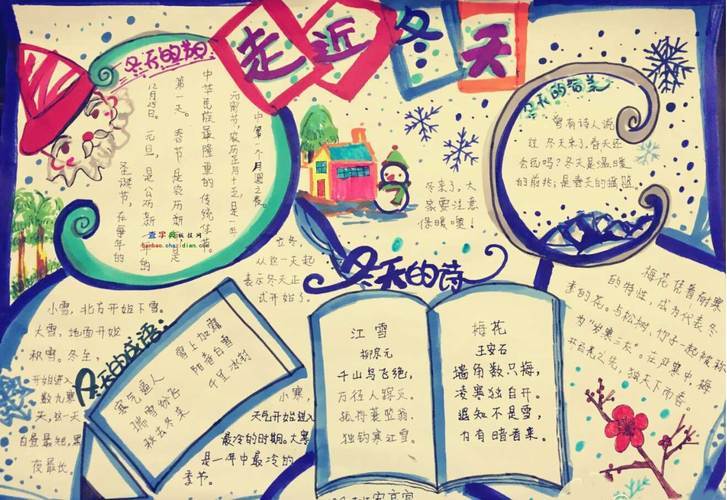 走近冬天
冬天的节日
圣诞节,在每年的
12月25日。元旦,是公历新年的
第一天。春节是农历
中华民族最隆重的传统佳节。
元宵节,农历正月十五,是一年
中第一个月圆之夜
查字典 板报网
banbao.chazidian.com
冬天来了,大
家要注意
保暖噢!
冬天的
曾有诗人说
过 冬天来了,春天还
会远吗?冬天是温暖
的前兆,是春天的
立冬
从这一天起
表示冬天正
式开始了。
小雪,北方开始下雪。
大雪,地面开始
积雪。冬至,
开始进入
数九寒
天,这一天
白昼最短,黑
夜最长。
小寒,
天气开始进入
最冷的时期。大寒
是一年中最冷的
季节。
冬天的成语。
雪上加霜
阳春白雪
千里冰封
寒气逼人
瑞雪纷飞
秋去冬来
冬天的诗
江雪
柳宗元
千山鸟飞绝,
万径人踪灭。
孤舟蓑笠翁,
独钓寒江雪。
梅花
王安石
墙角数只梅,
凌寒独自开。
遥知不是雪,
为有暗香来。
梅花凭着耐寒
的特性,成为代表冬
季的花。与松树、竹子一起被称
为"岁寒三友"。在严寒中,梅
开百花之先,独天下而春。